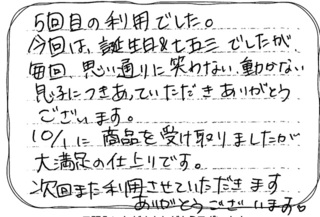 5回目の利用でした。
今回は、誕生日&七五三でしたが
毎回、思い通りに笑わない、動かない
息子につきあっていただきありがとう
ございます。
10/1に商品を受け取りましたが
大満足の仕上りです。
次回また利用させていただきます
ありがとうございます。